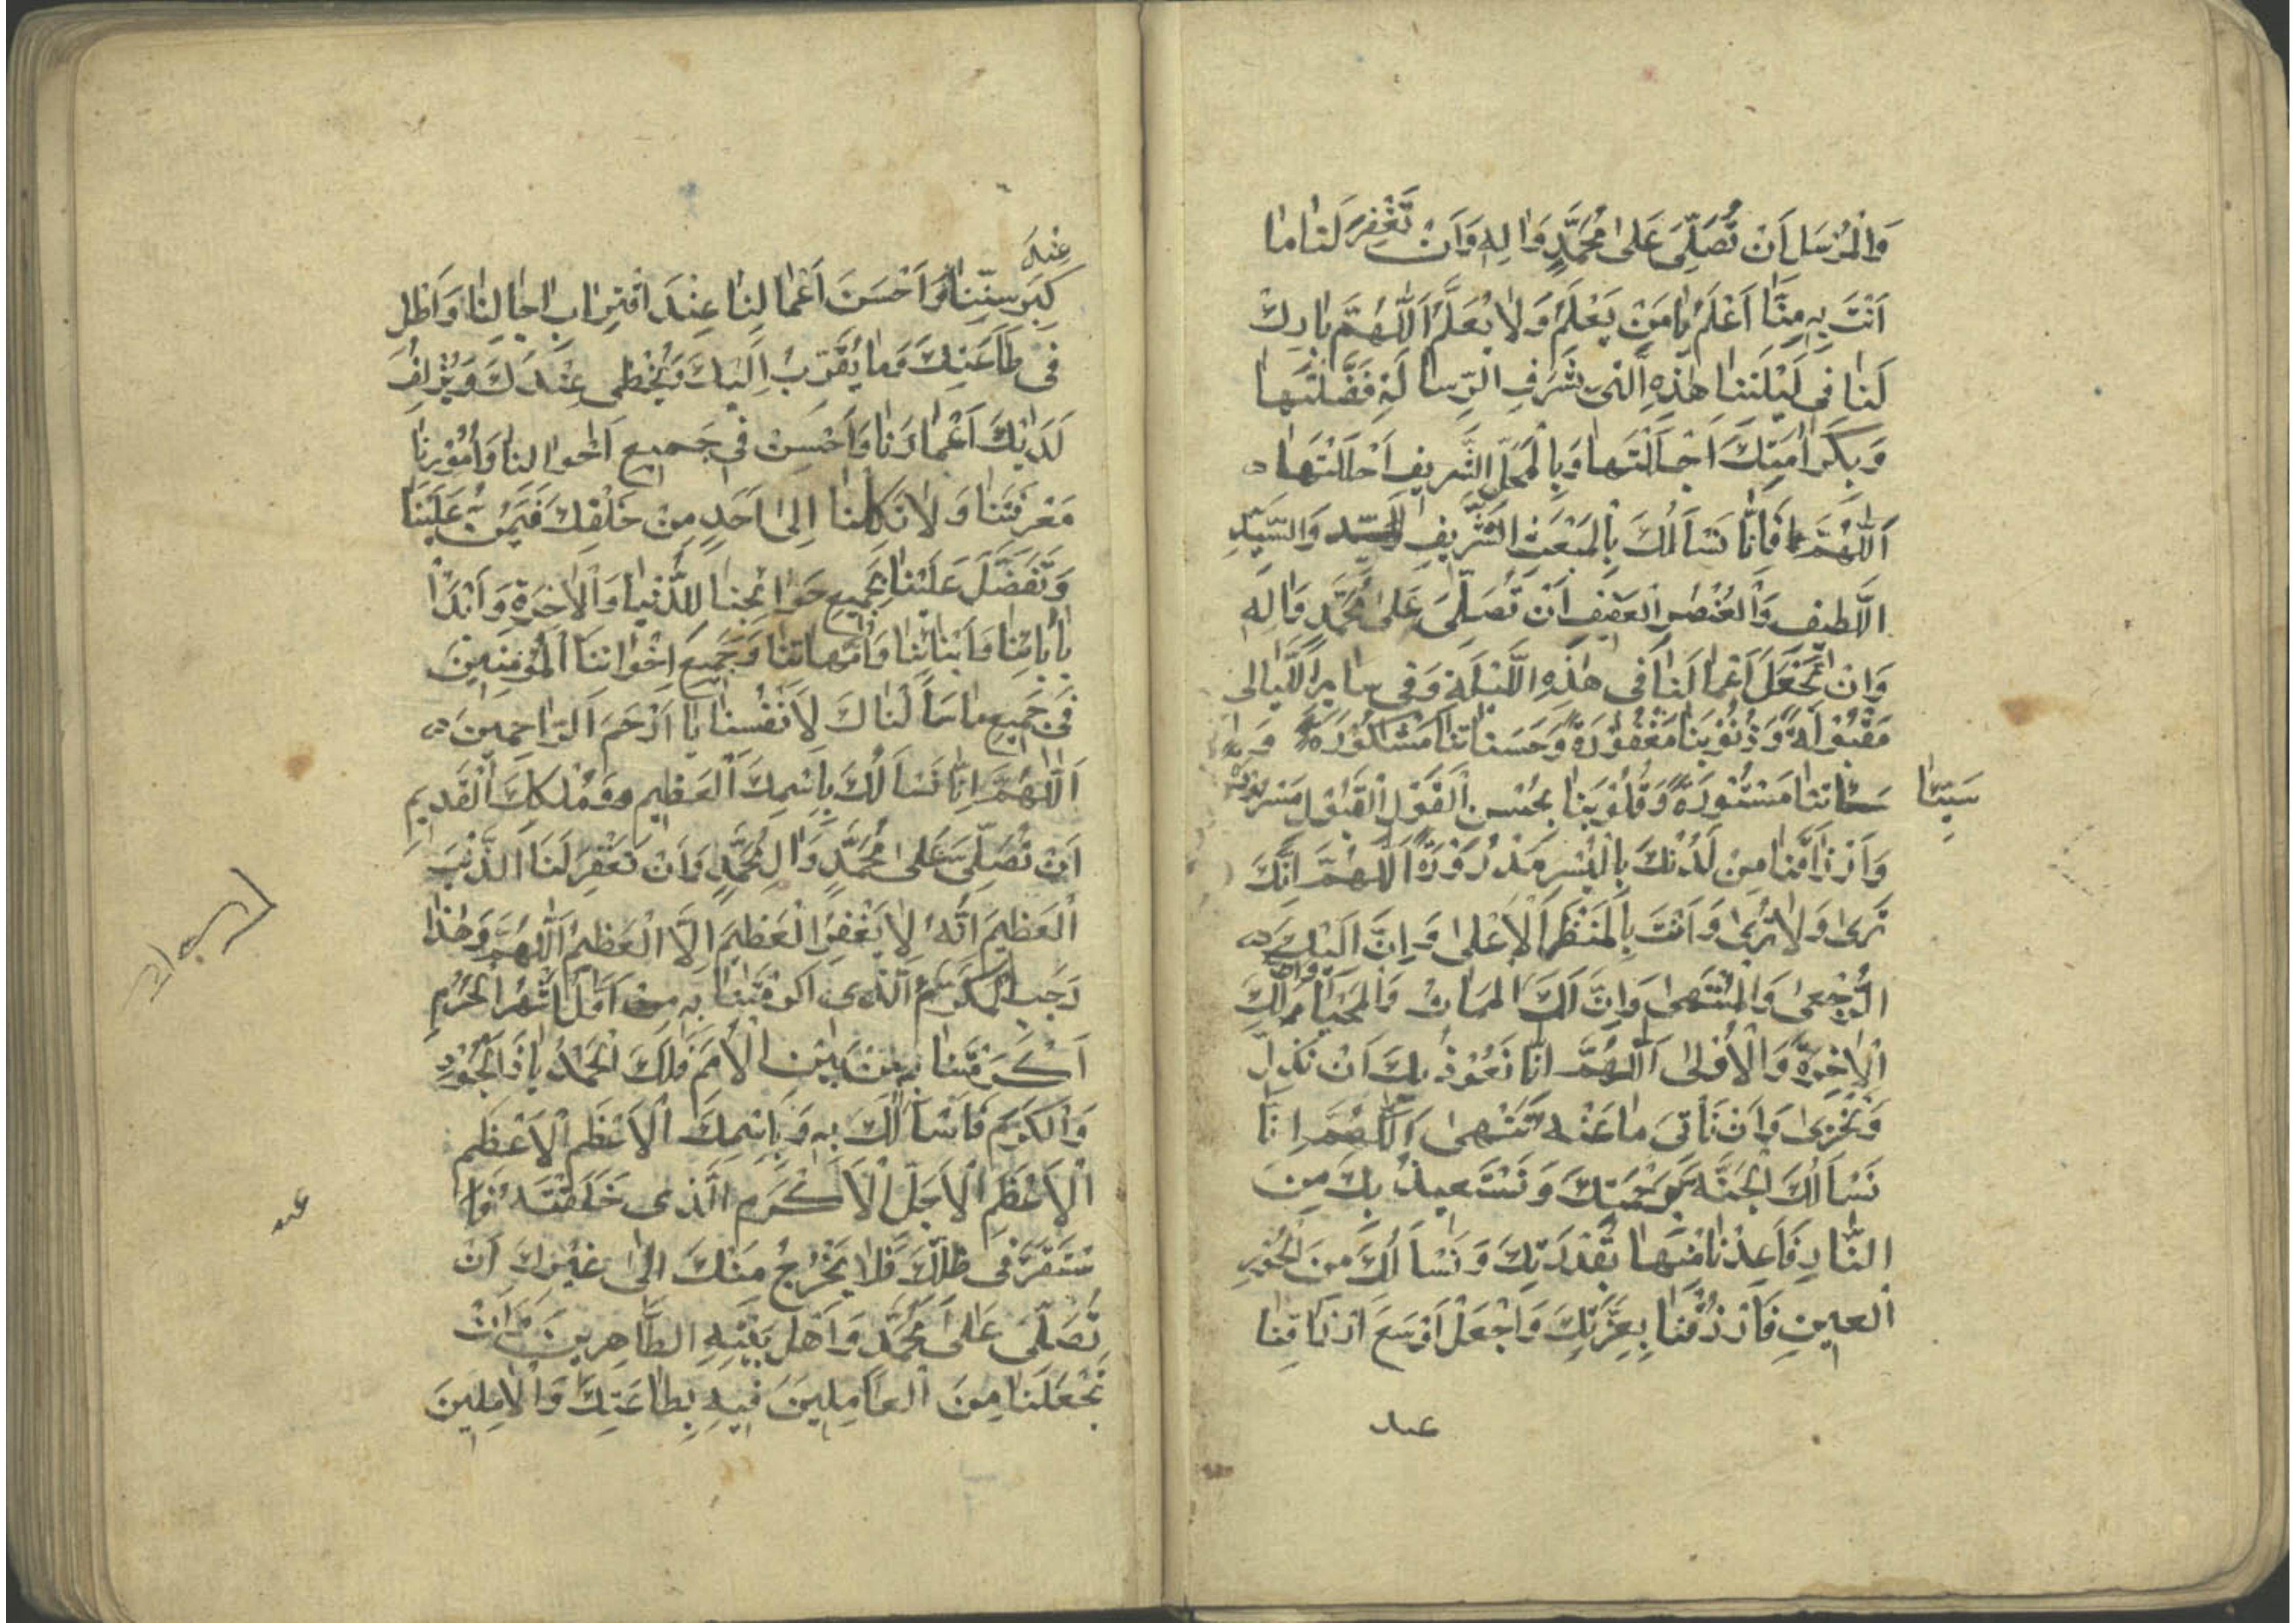 وَالْمُرْسَلِ اَنْ تُصَلِّيَ عَلىٰ مُحَمَّدٍ وَاٰلِهِ وَاَنْ تَغْفِرَ لَنٰا مٰا
اَنْتَ بِهِ مِنَّا اَعْلَمُ يٰا مَنْ يَعْلَمُ وَلٰا يُعْلَمُ اَللّٰهُمَّ بٰارِكْ
لَنٰا فى لَيْلَتِنٰا هٰذِهِ الَّتى بِشَرَفِ الرِّسٰالَةِ فَضَّلْتَهٰا
وَبِكَرٰامَتِكَ اَجْلَلْتَهٰا وَبِالْمَحَلِّ الشَّريفِ اَحْلَلْتَهٰا
اَللّٰهُمَّ فَاِنَّا نَسْاَلُكَ بِالْمَبْعَثِ الشَّريفِ وَالسَّيِّدِ
اللَّطيفِ وَالْعُنْصُرِ الْعَفيفِ اَنْ تُصَلِّيَ عَلىٰ مُحَمَّدٍ وَاٰلِهِ
وَاَنْ تَجْعَلَ اَعْمٰالَنٰا فى هٰذِهِ اللَّيْلَةِ وَفى سٰايِرِ اللَّيٰالى
مَقْبُوْلَةً وَذُنُوْبَنٰا مَغْفُوْرَةً وَحَسَنٰاتِنٰا مَشْكُوْرَةً وَ
سَيِّئٰا
تِنٰا مَسْتُوْرَةً وَقُلُوْبَنٰا بِحُسْنِ الْقَوْلِ الْقَبُوْلِ مَسْرُوْرَةً
وَاَرْزٰاقَنٰا مِنْ لَدُنْكَ بِالْيُسْرِ مَدْرُوْرَةً اَللّٰهُمَّ اِنَّكَ
تَرىٰ وَلٰا تُرىٰ وَاَنْتَ بِالْمَنْظَرِ الْاَعْلىٰ وَاِنَّ اِلَيْكَ
الرُّجْعىٰ وَالْمُنْتَهىٰ وَاِنَّ لَكَ الْمَمٰاتَ وَالْمَحْيٰا وَاِنَّ لَكَ
الْاٰخِرَةَ وَالْاُوْلىٰ اَللّٰهُمَّ اِنَّا نَعُوْذُ بِكَ اَنْ نَذِلَّ
وَنَخْزىٰ وَاَنْ نَأْتِىَ مٰا عَنْهُ تَنْهىٰ اَللّٰهُمَّ اِنَّا
نَسْاَلُكَ الْجَنَّةَ بِرَحْمَتِكَ وَنَسْتَعيذُ بِكَ مِنَ
النّٰارِ فَاَعِذْنٰا مِنْهٰا بِقُدْرَتِكَ وَنَسْاَلُكَ مِنَ الْحُوْرِ
الْعينِ فَارْزُقْنٰا بِعِزَّتِكَ وَاجْعَلْ اَوْسَعَ اَرْزٰاقِنٰا
عِنْدَ
كِبَرِ سِنِّنٰا وَاَحْسَنَ اَعْمٰالِنٰا عِنْدَ اقْتِرٰابِ اٰجٰالِنٰا وَاَطِلْ
فى طٰاعَتِكَ وَمٰا يُقَرِّبُ اِلَيْكَ وَيُحْظى عِنْدَكَ وَيُزْلِفُ
لَدَيْكَ اَعْمٰارَنٰا وَاَحْسِنْ فى جَميعِ اَحْوٰالِنٰا وَاُمُوْرِنٰا
مَعْرِفَتَنٰا وَلٰا تَكِلْنٰا اِلىٰ اَحَدٍ مِنْ خَلْقِكَ فَيَمُنَّ عَلَيْنٰا
وَتَفَضَّلْ عَلَيْنٰا بِجَميعِ حَوٰائِجِنٰا لِلدُّنْيٰا وَالْاٰخِرَةِ وَابْدَأْ
بِاٰبٰائِنٰا وَاَبْنٰائِنٰا وَاُمَّهٰاتِنٰا وَجَميعِ اِخْوٰانِنَا الْمُؤْمِنينَ
فى جَميعِ مٰا سَاَلْنٰاكَ لِاَنْفُسِنٰا يٰا اَرْحَمَ الرّٰاحِمينَ
اَللّٰهُمَّ اِنَّا نَسْاَلُكَ بِاسْمِكَ الْعَظيمِ وَمُلْكِكَ الْقَديمِ
اَنْ تُصَلِّيَ عَلىٰ مُحَمَّدٍ وَاٰلِ مُحَمَّدٍ وَاَنْ تَغْفِرَ لَنَا الذَّنْبَ
الْعَظيمَ اِنَّهُ لٰا يَغْفِرُ الْعَظيمَ اِلَّا الْعَظيمُ اَللّٰهُمَّ وَهٰذٰا
رَجَبُ الْمُكَرَّمُ الَّذى اَكْرَمْتَنٰا بِهِ اَوَّلُ اَشْهُرِ الْحُرُمِ
اَكْرَمْتَنٰا بِهِ مِنْ بَيْنِ الْاُمَمِ فَلَكَ الْحَمْدُ يٰا ذَا الْجُوْدِ
وَالْكَرَمِ فَاَسْاَلُكَ بِهِ وَبِاسْمِكَ الْاَعْظَمِ الْاَعْظَمِ
الْاَعْظَمِ الْاَجَلِّ الْاَكْرَمِ الَّذى خَلَقْتَهُ فَا
سْتَقَرَّ فى ظِلِّكَ فَلٰا يَخْرُجُ مِنْكَ اِلىٰ غَيْرِكَ اَنْ
تُصَلِّيَ عَلىٰ مُحَمَّدٍ وَاَهْلِ بَيْتِهِ الطّٰاهِرينَ وَاَنْ
تَجْعَلَنٰا مِنَ الْعٰامِلينَ فيهِ بِطٰاعَتِكَ وَالْاٰمِلينَ